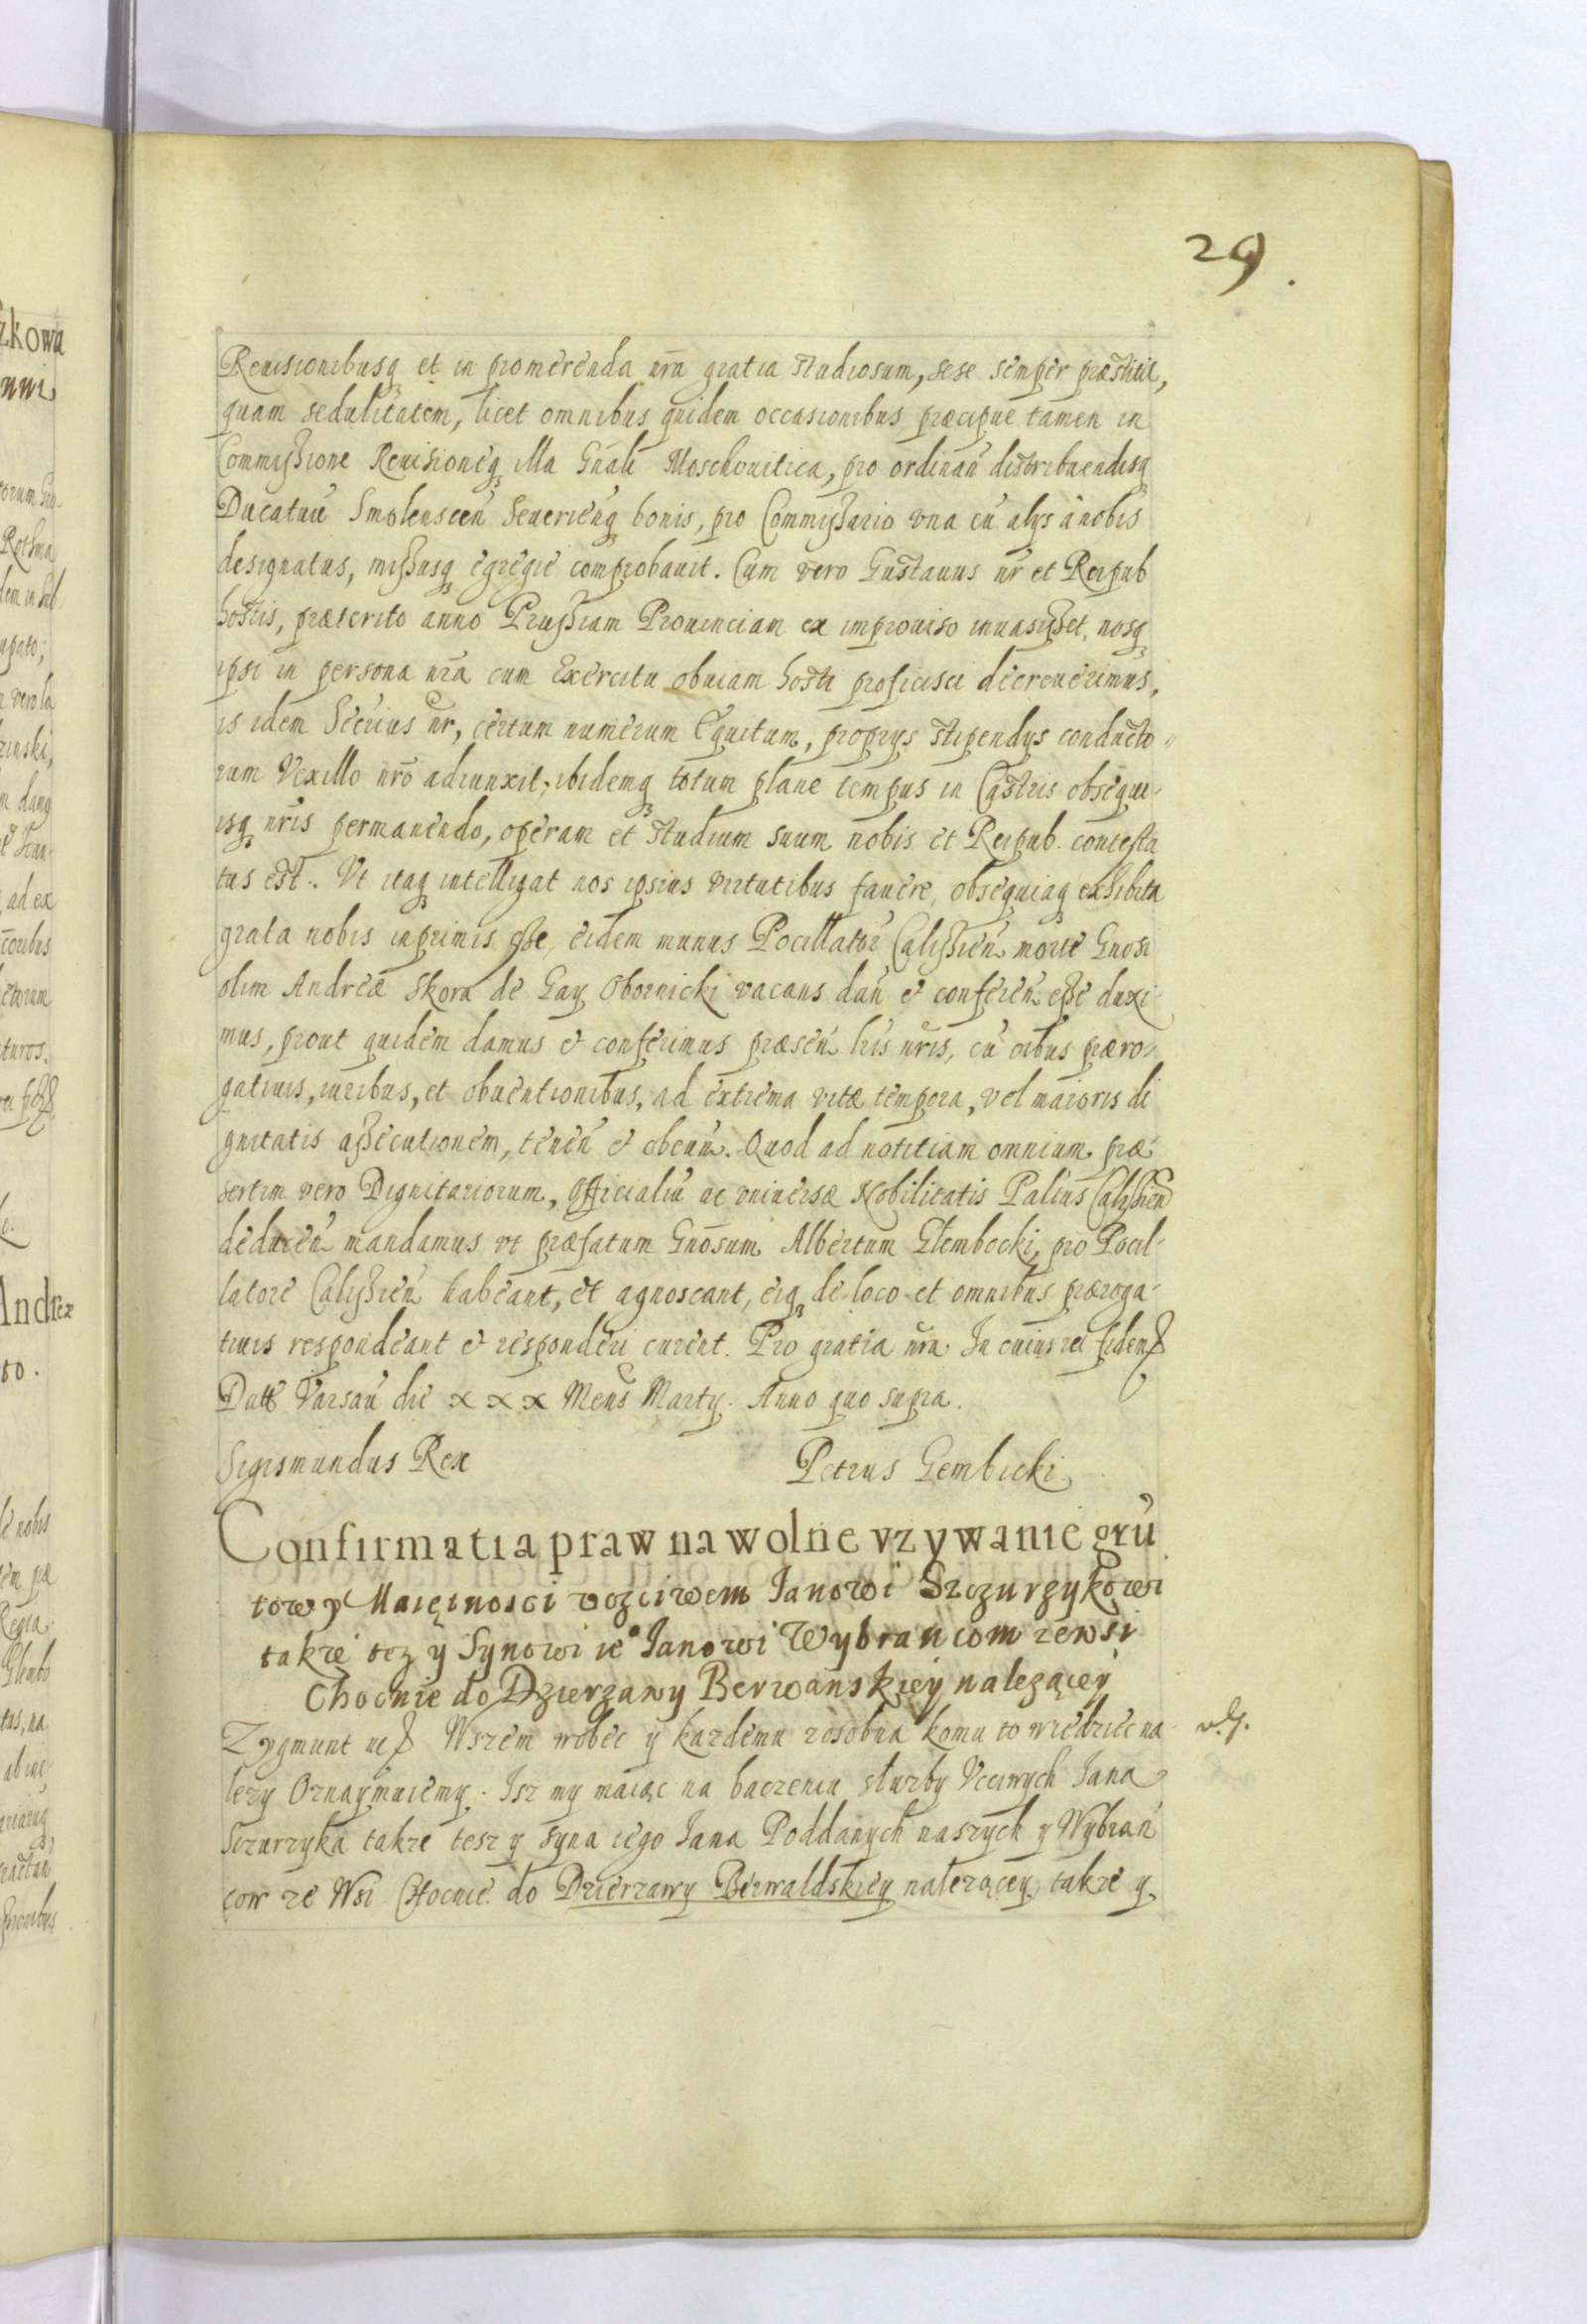 29.
Reuisionibusq et in promerenda nra gratia studiosum, sese semper præstitit,
quam sedulitatem, licet omnibus quidem occasionibus præcipue tamen in
Commissione Reuisioneq illa Gnali Moschouitica, pro ordinan distribuendisq
Ducatuu Smolenscen Seuerienq bonis, pro Commissario vna cu alys a nobis
designatus, missusq egregie comprobauit. Cum vero Gustauus nr et Reipub
hostis, præterito anno Prussiam Prouinciam ex improuiso inuasisset, nosq
ipsi in persona nra cum Exercitu obuiam hosti proficisci decreuerimus,
is idem Secrius nr, certum numerum Equitum, proprys stipendys conducto
rum Vexillo nro adiunxit, ibidemq totum plane tempus in Castris obsequi-
isq nris permanendo, operam et studium suum nobis et Reipub. contesta
tus est. Vt itaq intelligat nos ipsius virtutibus fauere, obsequiaq exhibita
grata nobis inprimis esse, eidem munus Pocillator Calissien morte Gnosi
olim Andreæ Skora de Gay Obornicki vacans dan et conferen esse duxi-
mus, prout quidem damus et conferimus præsen lris nris, cu oibus præro-
gatiuis, iuribus, et obuentionibus, ad extrema vitæ tempora, vel maioris di
gnitatis assecutionem, tenen et obeun. Quod ad notitiam omnium præ-
sertim vero Dignitariorum, Officialiu ac vniuersæ Nobilitatis Palius Calissien
deducen mandamus vt præfatum Gnosum Albertum Glembocki, pro Pocil-
latore Calissien habeant, et agnoscant, eiq de loco et omnibus præroga-
tiuis respondeant et responderi curent. Pro gratia nra. In cuius rei fidem
Datt Varsau die XXX Mens Marty. Anno quo supra.
Sigismundus Rex Petrus Gembicki
Confirmatia praw na wolne vzywanie gru
tow y Maiętnosci vczciwem Janowi Szczurzykowi
takze tez y Synowi ie° Janowi Wybrancom zewsi
Chocnie do Dzierzawy Berwanskiey nalezącey
Zygmunt Wszem wobec y kazdemu zosobna komu to wiedziec na
lezy Oznaymuiemy. Isz my maiąc na baczeniu sluzby Vcciwych Jana
Sczurzyka takze tesz y syna iego Jana Poddanych naszych y Wybran
cow ze Wsi Chocnie do Dzierzawy Berwaldskiey nalezącey, takze y